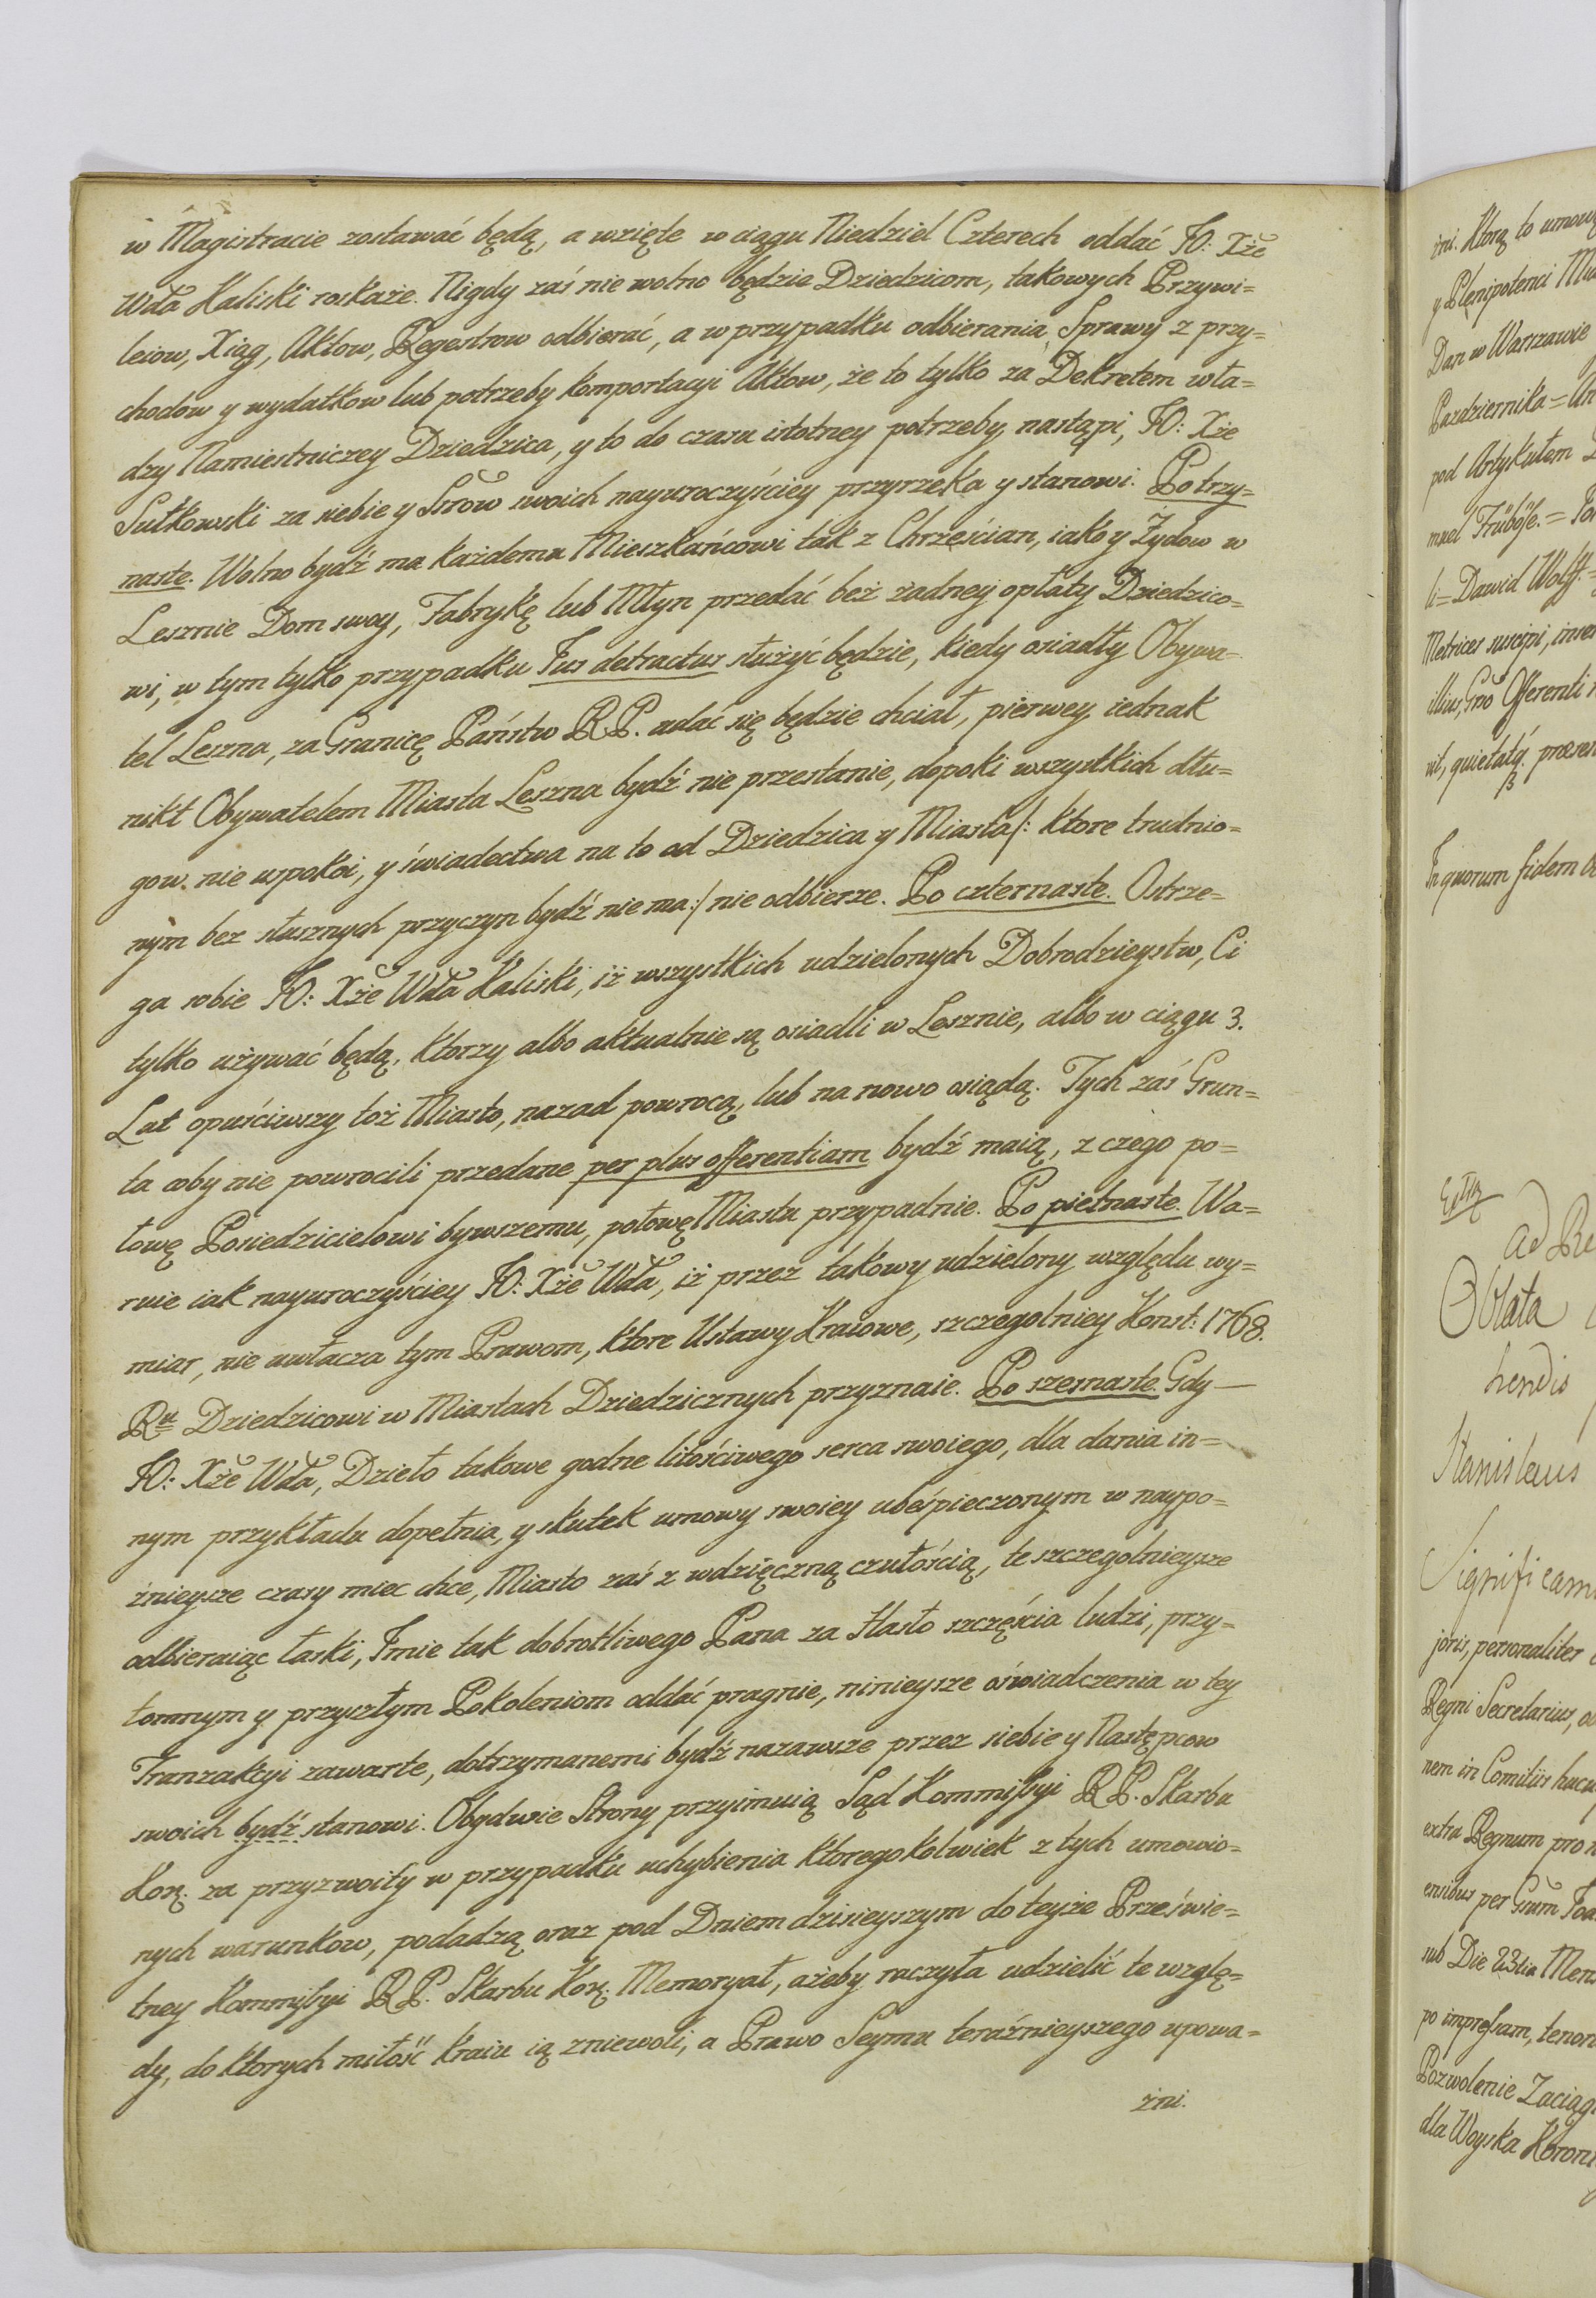 w Magistracie zostawać będą, a wzięte w ciągu Niedziel Czterech oddać JO: Xże
Wda Kaliski roskaże. Nigdy zaś nie wolno będzie Dziedzicom, takowych Przywi=
leiow, Xiąg, Aktow, Regestrow odbierać, a w przypadku odbierania Sprawy z przy=
chodow y wydatkow lub potrzeby komportacyi Aktow, że to tylko za Dekretem wła=
dzy Namiestniczey Dziedzica, y to do czasu istotney potrzeby nastąpi, JO: Xże
Sułkowski za siebie y Ssrow swoich nayuroczyściey przyrzeka y stanowi. Po trzy=
naste. Wolno bydź ma każdemu Mieszkańcowi tak z Chrześcian, iako y Żydow w
Lesznie Dom swoy, Fabrykę lub Młyn przedać bez żadney opłaty Dziedzico=
wi, w tym tylko przypadku Jus detractus służyć będzie, kiedy osiadły Obywa=
tel Leszna, za Granicę Państw RP. udać się będzie chciał, pierwey iednak
nikt Obywatelem Miasta Leszna bydź nie przestanie, dopoki wszystkich dłu=
gow nie uspokoi, y świadectwa na to od Dziedzica y Miasta /: ktore trudnio=
nym bez słusznych przyczyn bydź nie ma :/ nie odbierze. Po czternaste. Ostrze=
ga sobie JO: Xże Wda Kaliski, iż wszystkich udzielonych Dobrodzieystw, Ci
tylko używać będą, ktorzy albo aktualnie są osiadli w Lesznie, albo w ciągu 3.
Lat opuściwszy toż Miasto, nazad powrocą, lub na nowo osiądą. Tych zaś Grun=
ta coby nie powrocili przedane per plus offerentiam bydź maią, z czego po=
łowę Posiedzicielowi bywszemu, połowę Miastu przypadnie. Po pietnaste. Wa=
ruie iak nayuroczyściey JO: Xże Wda, iż przez takowy udzielony względu wy=
miar, nie uwłacza tym Prawom, ktore Ustawy Kraiowe, szczegolniey Konst: 1768.
Ru Dziedzicowi w Miastach Dziedzicznych przyznaie. Po szesnaste. Gdy —
JO: Xże Wda, Dzieło takowe godne litościwego serca swoiego, dla dania in=
nym przykładu dopełnia, y skutek umowy swoiey ubeśpieczonym w naypo=
źnieysze czasy miec chce, Miasto zaś z wdzięczną czułością, te szczegolnieysze
odbieraiąc łaski, Jmie tak dobrotliwego Pana za Hasło szczęścia ludzi, przy=
tomnym y przyszłym Pokoleniom oddać pragnie, ninieysze oświadczenia w tey
Tranzakcyi zawarte, dotrzymanemi bydź nazawsze przez siebie y Następcow
swoich bydź stanowi. Obydwie Strony przyimuią Sąd Kommissyi RP. Skarbu
Korj. za przyzwoity w przypadku uchybienia ktoregokolwiek z tych umowio=
nych warunkow, podadzą oraz pod Dniem dzisieyszym do teyże Prześwie=
tney Kommissyi RP. Skarbu Korj. Memoryał, ażeby raczyła udzielić te wzglę=
dy, do ktorych miłość kraiu ią zniewoli, a Prawo Seymu teraźnieyszego upowa=
żni.
żni. Ktorą to umow
y Plenipotenci
Dan w Warszawie
Pazdziernika =
pod Artykułem
muel
li = Dawid Wolff. =
Metrices suscipi,
illius, Gnō Offerenti
vit, quietatq.
In quorum fidem
Oblata
hendis
Stanislaus
Significam
joris, personaliter
Regni Secretarius,
nem in Comitiis
extra Regnum pro
per Gsum
sub Die 23tia Mens
po impressam, tenor
Pozwolenie Zaciąg
dla Woyska Koron